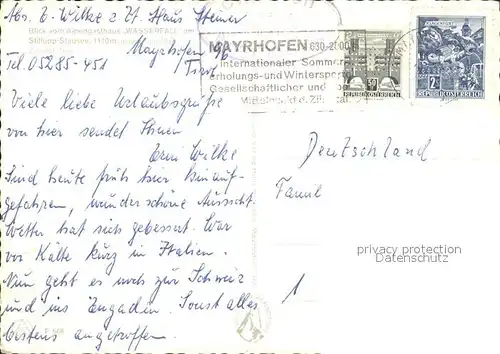 Abs. E. Wilke z. Zt. Haus Steiner
Blick vom Alpengasthaus "WASSERFALL" am
Stillupp-Stausee, 1110m
Mayrhofen
Tel. 05285-451 Tirol
Viele liebe Urlaubsgrüße
von hier sendet Ihnen
Erni Wilke
Sind heute früh hier hinauf-
gefahren, wunderschöne Aussicht.
Wetter hat sich gebessert. War
vor Kälte kurz in Italien.
Nun geht es noch zur Schweiz
und ins Engadin. Sonst alles
bestens angetroffen.
MAYRHOFEN 630-2100m
Internationaler Sommer
Erholungs- und Winterspo
Gesellschaftlicher und
Mittelpunkt d. Zill
REPUBLIK ÖSTERREICH
KLAGENFURT
2S
REPUBLIK ÖSTERREICH
Deutschland
Famil
privacy protection
Datenschutz
1